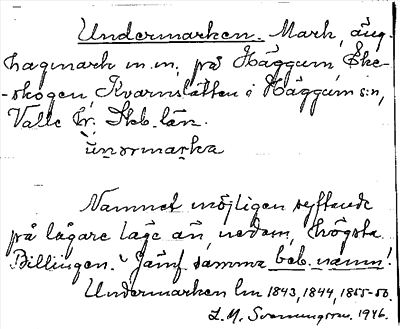 Undermarken. Mark, äng.
hagmark m.m. på Häggum, Eke-
-skogen, Kvarnslätten i Häggum s:n,
Valle hr. Skb. län.
ùṇərmarka
Namnet möjligen syftande
på lägare läge än nedom, högsta
Billingen. Jämf. samma beb.namn!
Undermarken lm 1843, 1844, 1855-50.
L. M. Svenungsson. 1946.